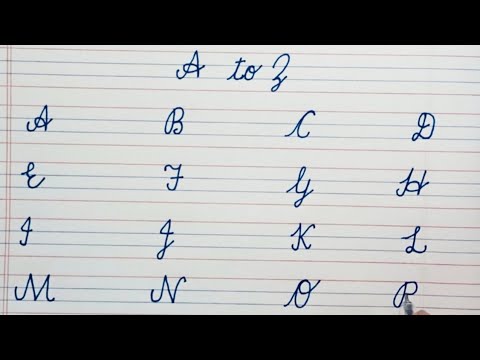 A to Z
A B C D
E F G H
I J K L
M N O P